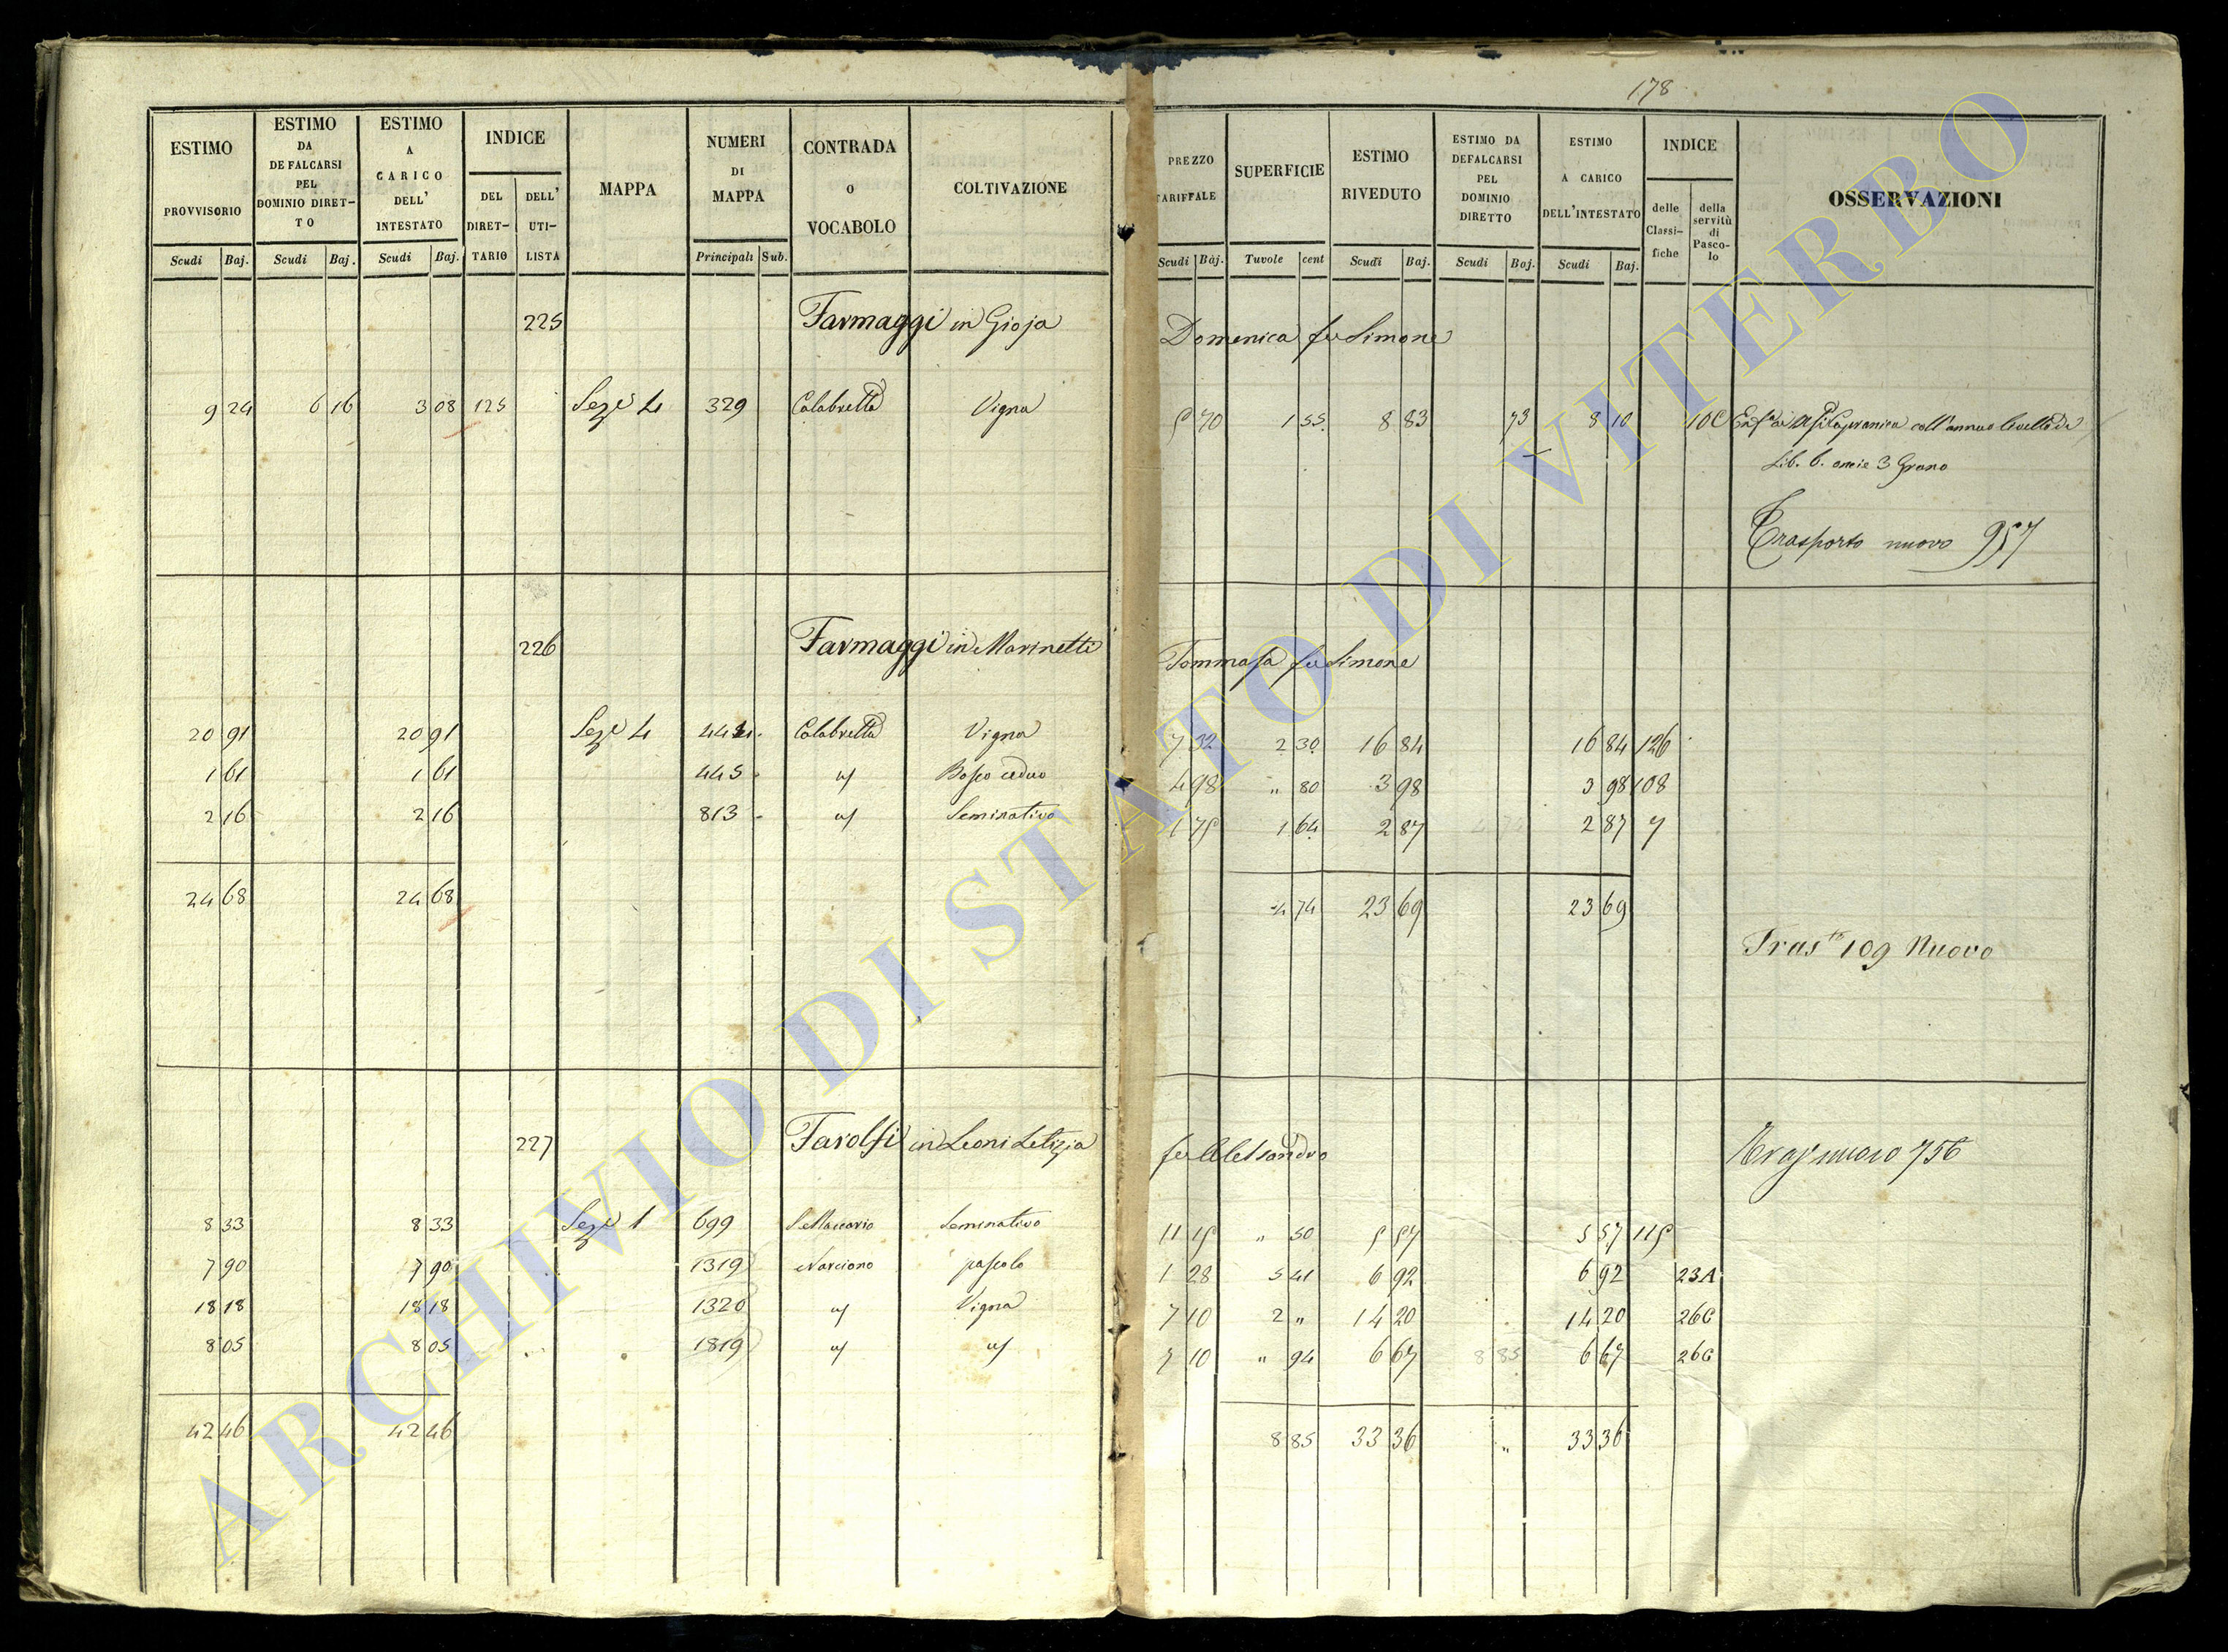 178
ESTIMO PROVVISORIO
ESTIMO DA DEFALCARSI PEL DOMINIO DIRETTO
ESTIMO A CARICO DELL' INTESTATO
INDICE
DEL DIRETTARIO
DELL' UTILISTA
MAPPA
NUMERI DI MAPPA
CONTRADA o VOCABOLO
COLTIVAZIONE
PREZZO TARIFFALE
SUPERFICIE
ESTIMO RIVEDUTO
ESTIMO DA DEFALCARSI PEL DOMINIO DIRETTO
ESTIMO A CARICO DELL'INTESTATO
INDICE
delle Classifiche
della servitù di Pascolo
OSSERVAZIONI
Scudi Baj. Scudi Baj. Scudi Baj. Principali Sub. Scudi Baj. Tavole cent Scudi Baj. Scudi Baj. Scudi Baj.
225 Farmaggi in Gioja Domenica fu Simone
9 24 6 16 3 08 125 Sezе 4 329 Calabretta Vigna 5 70 1 55 8 83 73 8 10 10C coll'annuo livello di
Lib. 6. oncie 3 Grano
Trasporto nuovo 957
226 Farmaggi in Marinetti Tommasa fu Simone
20 91 20 91 Seze 4 444 Calabretta Vigna 7 32 2 30 16 84 16 84 126
1 61 1 61 445 Bosco ceduo 4 98 " 80 3 98 3 98 108
2 16 2 16 813 Seminativo 1 75 1 64 2 87 2 87 7
24 68 24 68 4 74 23 69 23 69
Trasto 109 Nuovo
227 Farolfi in Leoni Letizia fu Alessandro nuovo 756
8 33 8 33 Seze 1 699 S. Maccario Seminativo 11 15 " 50 5 57 5 57 115
7 90 7 90 1319 Narciano pascolo 1 28 5 41 6 92 6 92 23A
18 18 18 18 1320 Vigna 7 10 2 " 14 20 14 20 26C
8 05 8 05 1819 7 10 " 94 6 67 8 85 6 67 26C
42 46 42 46 8 85 33 36 " 33 36
ARCHIVIO DI STATO DI VITERBO